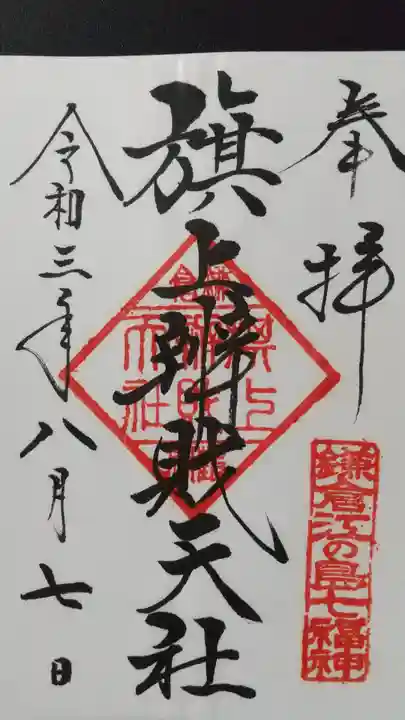 奉拝
鎌倉江の島七福神
旗上辨財天社
令和三年八月七日